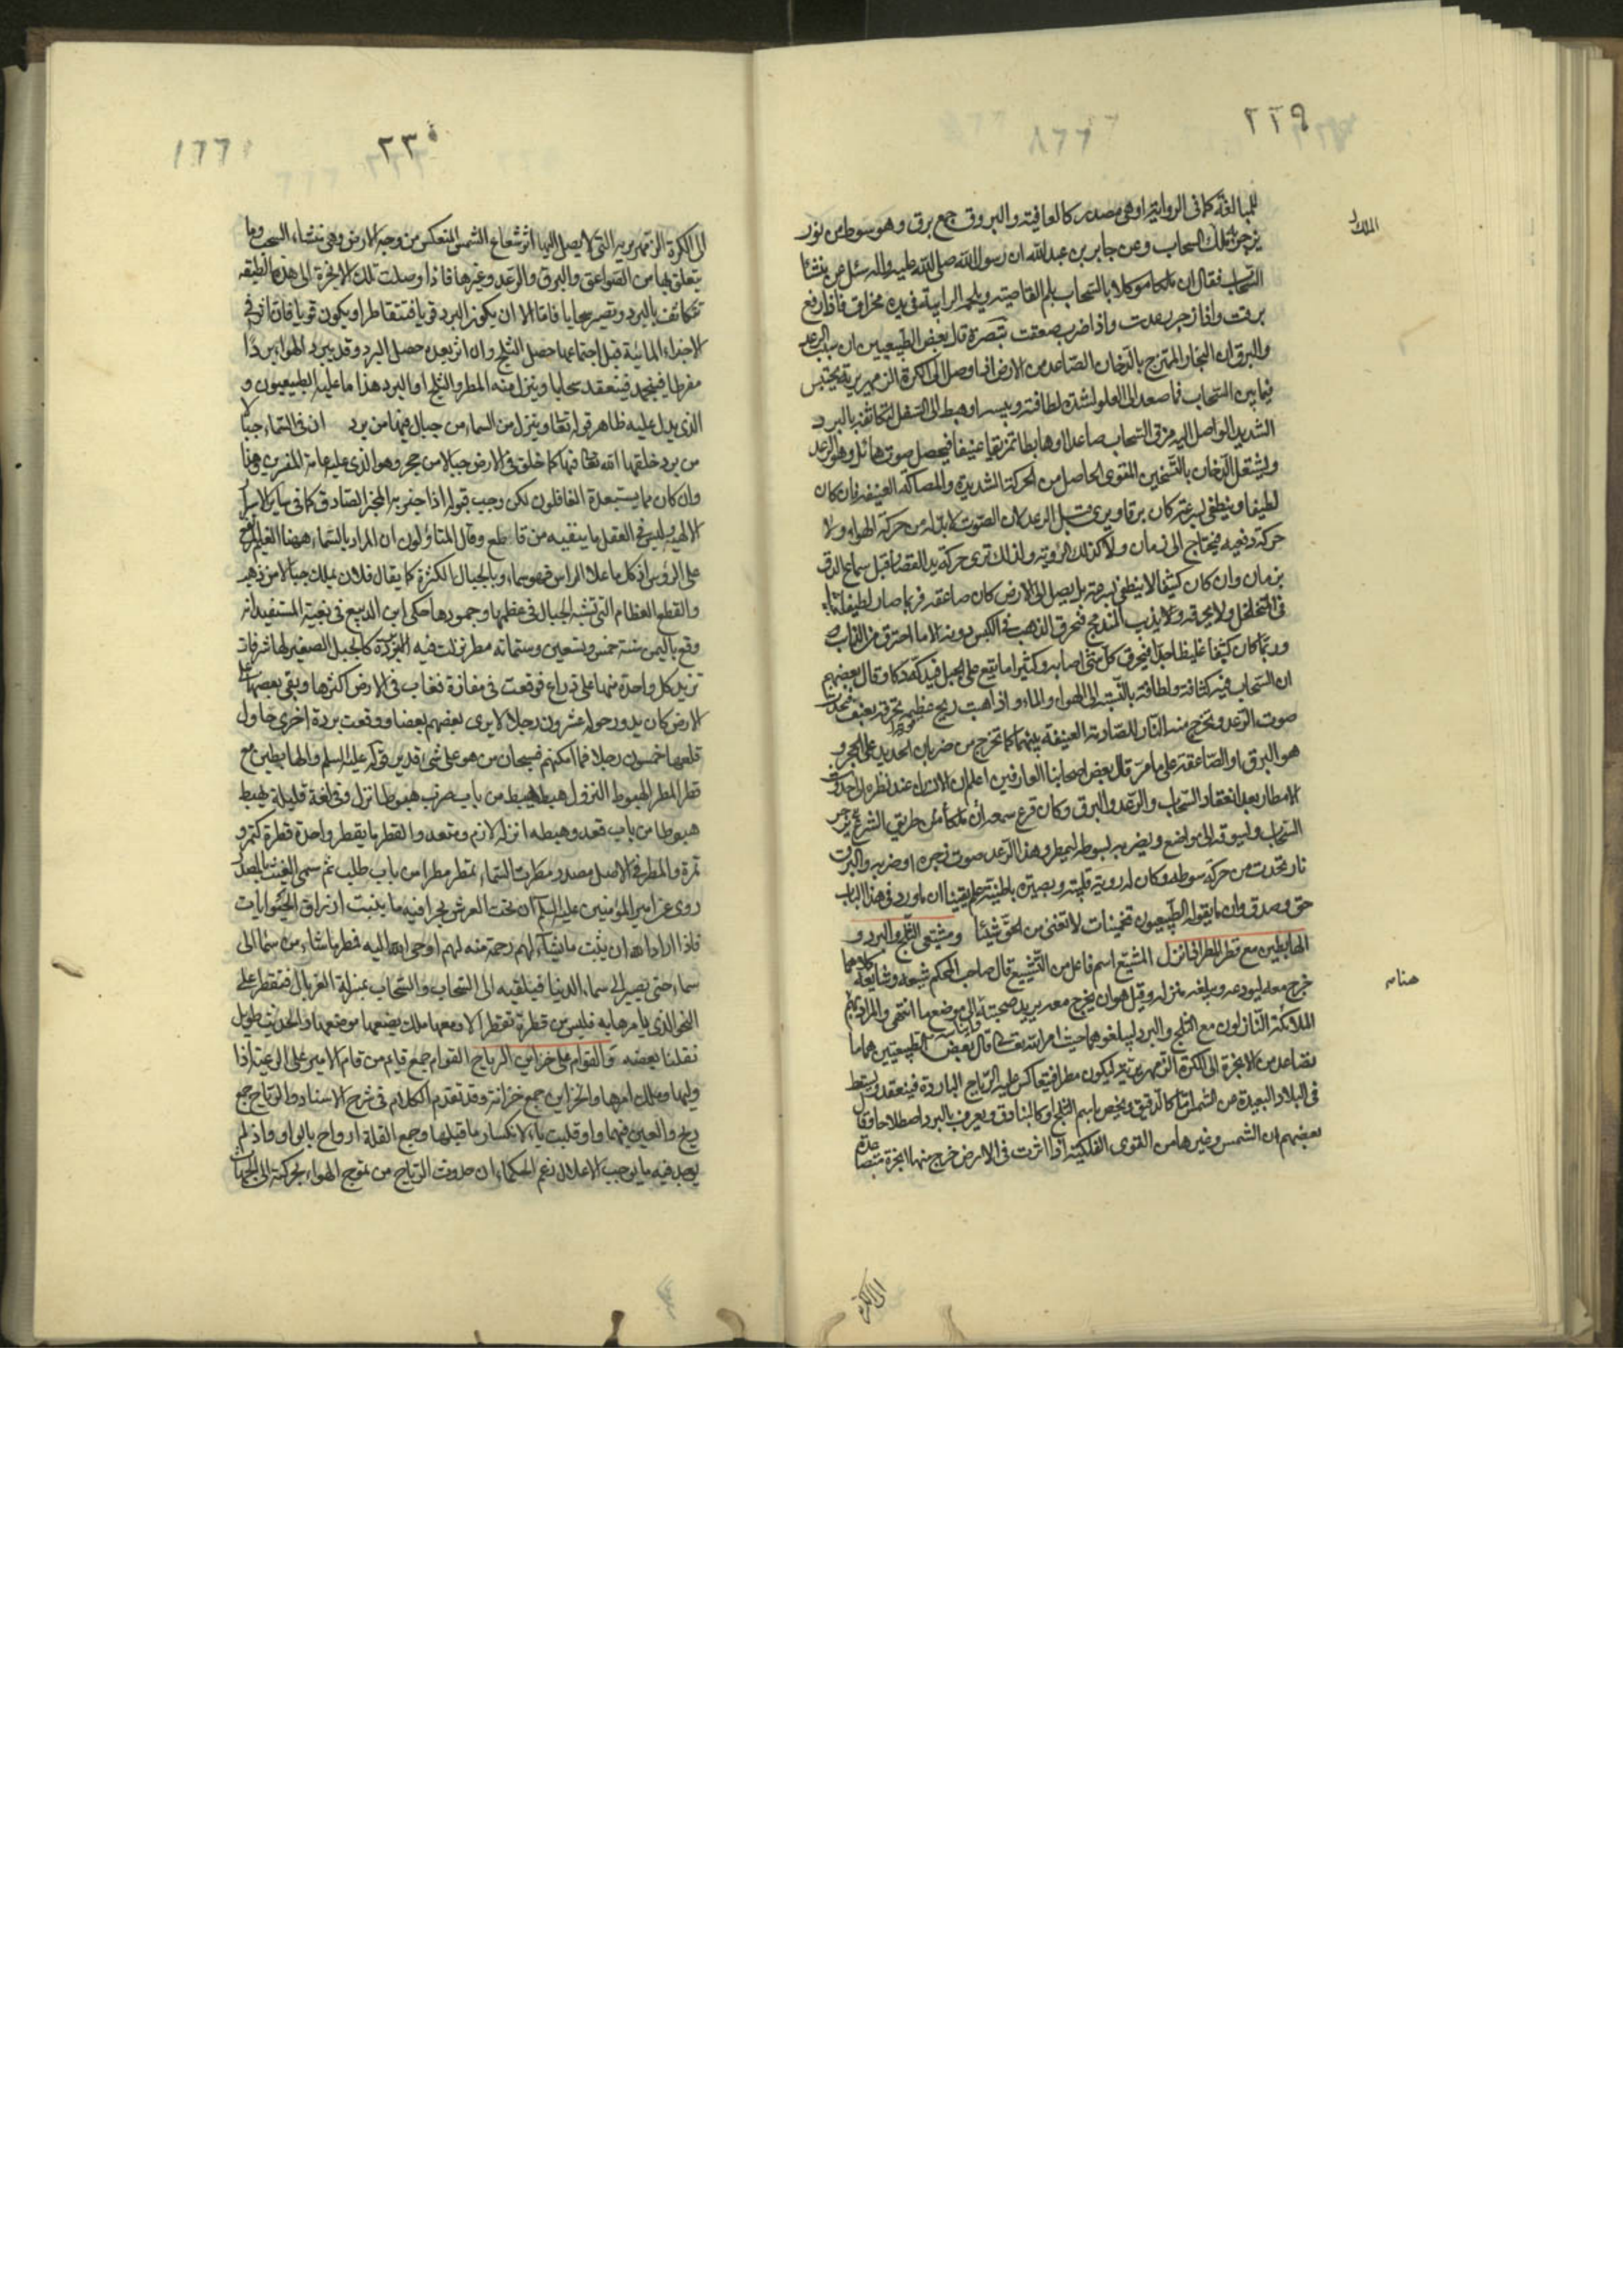 ٢٢٩
للمبالغة كما فى الرواية او هى مصدر كالعافية والبروق جمع برق وهو سوط من نور
يزجر به الملك السحاب وعن جابر بن عبد الله ان رسول الله صلى الله عليه واله سئل عن منشأ
السحاب فقال ان ملكا موكلا بالسحاب يلم القاصية ويلحم الرابية فى يده مخراق فاذا رفع
برقت واذا زجر رعدت واذا ضرب صعقت تبصرة قال بعض الطبيعيين ان سبب الرعد
والبرق ان البخار الممتزج بالدخان الصاعد من الارض اذا وصل الى الكرة الزمهريرية يحتبس
فيما بين السحاب فما صعد الى العلو لشدة لطافته ويبسه او هبط الى السفل لتكاثفه بالبرد
الشديد الواصل اليه مزق السحاب صاعدا او هابطا تمزيقا عنيفا فيحصل صوت هائل وهو الرعد
ويشتعل الدخان بالتسخين القوى الحاصل من الحركة الشديدة والمصاكة العنيفة فان كان
لطيفا وينطفى بسرعة كان برقا ويرى قبل الرعد لان الصوت لا بد له من حركة الهواء ولا
حركة دفعية فيحتاج الى زمان ولا كذلك الرؤية ولذلك ترى حركة يد القصار قبل سماع الدق
بزمان وان كان كثيفا لا ينطفى بسرعة بل يصل الى الارض كان صاعقة فربما صار لطيفا ينفذ
فى المتخلخل ولا يحرقه ويذيب المندمج فيحرق الذهب فى الكيس دونه الا ما احترق من الذائب
وربما كان كثيفا غليظا جدا فيحرق كل شئ اصابه وكثيرا ما يقع على الجبل فيدكه دكا وقال بعضهم
ان السحاب فيه كثافة ولطافة بالنسبة الى الهواء والماء واذا هبت ريح عظيمة تخرقه بعنف فيحدث
صوت الرعد ويخرج منه النار للمصادمة العنيفة بينهما كما تخرج من ضرب الحديد على الحجر و
هو البرق او الصاعقة على ما مر قال بعض اصحابنا العارفين اعلم ان الانسان عند نظره الى حدوث
الامطار بعد انعقاد السحاب والرعد والبرق وكان قرع سمعه ان ملكا من طريق الشرع يزجر
السحاب ويسوقه الى مواضع ويضربه بسوطه ليمطر وهذا الرعد صوت زجره او ضربه والبرق
نار تحدث من حركة سوطه وكان له روية قلبية وبصيرة باطنية علم يقينا ان ما ورد فى هذا الباب
حق وصدق وان ما يقوله الطبيعيون تخمينات لا تغنى من الحق شيئا ومشيعى الثلج والبرد و
الهابطين مع قطر المطر اذا نزل المشيع اسم فاعل من التشييع قال صاحب المحكم شيعه وشايعه كلاهما
خرج معه ليودعه ويبلغه منزله وقيل هو ان يخرج معه يريد صحبته الى موضع ما انتهى والمراد بهم
الملائكة النازلون مع الثلج والبرد ليبلغوهما حيث امر الله تعالى قال بعض الطبيعيين هما ما
تصاعد من الابخرة الى الكرة الزمهريرية ليكون مطرا فيتعاكس عليه الرياح الباردة فينعقد ويسقط
فى البلاد البعيدة عن الشمس كالدقيق ويخص باسم الثلج او كالبنادق ويعرف بالبرد اصطلاحا وقال
بعضهم ان الشمس وغيرها من القوى الفلكية اذا اثرت فى الارض خرج منها ابخرة متصاعدة
الى الكرة
٢٣٠
الى الكرة الزمهريرية التى لا يصل اليها اثر شعاع الشمس المنعكس من وجه الارض وهى منشاء السحب وما
يتعلق بها من الصواعق والبرق والرعد وغيرها فاذا وصلت تلك الابخرة الى هذه الطبقة
تتكاثف بالبرد وتصير سحابا فاما الا ان يكون البرد قويا فتتقاطر او يكون قويا فان اثر فى
الاجزاء المائية قبل اجتماعها حصل الثلج وان اثر بعده حصل البرد وقد يبرد الهواء بردا
مفرطا فينجمد فينعقد سحابا وينزل منه المطر والثلج او البرد هذا ما عليه الطبيعيون و
الذى يدل عليه ظاهر قوله تعالى وينزل من السماء من جبال فيها من برد ان فى السماء جبالا
من برد خلقها الله تعالى فيها كما خلق فى الارض جبالا من حجر وهو الذى عليه عامة المفسرين وهذا
وان كان مما يستبعده الغافلون لكن وجب قبوله اذا اخبر به المخبر الصادق كما فى سائر الاسرار
الالهية وليس فى العقل ما ينفيه من قاطع وقال المتأولون ان المراد بالسماء هيهنا الغيم المرتفع
على الرؤس اذ كل ما علا الراس فهو سماء وبالجبال الكثرة كما يقال فلان يملك جبالا من ذهب
والقطع العظام التى تشبه الجبال فى عظمها وجمودها حكى ابن الديبع فى بغية المستفيد انه
وقع باليمن سنة خمس وتسعين وستمائة مطر نزلت فيه البردة كالجبل الصغير لها شرفات
تزيد كل واحدة منها على ذراع فوقعت فى مفازة فغاب فى الارض اكثرها وبقى بعضها على
الارض كان يدور حوله عشرون رجلا لا يرى بعضهم بعضا ووقعت بردة اخرى حاول
قلعها خمسون رجلا فما امكنهم فسبحان من هو على شئ قدير قوله عليه السلم والهابطين مع
قطر المطر الهبوط النزول هبط يهبط من باب ضرب هبوطا نزل وفى لغة قليلة يهبط
هبوطا من باب قعد وهبطه انزله لازم ومتعد والقطر ما يقطر واحدة قطرة كتمر و
تمرة والمطر فى الاصل مصدر مطرت السماء تمطر مطرا من باب طلب ثم سمى الغيث بالمصدر
روى عن امير المؤمنين عليه السلم ان تحت العرش بحرا فيه ما ينبت ارزاق الحيوانات
فاذا اراد الله ان ينبت ما يشاء لهم رحمة منه لهم اوحى الله اليه فمطر ما شاء من سماء الى
سماء حتى يصير الى سماء الدنيا فيلقيه الى السحاب والسحاب بمنزلة الغربال فتقطر على
النحو الذى يامرها به فليس من قطرة تقطر الا ومعها ملك يضعها موضعها والحديث طويل
نقلنا بعضه والقوام على خزائن الرياح القوام جمع قايم من قام الامير على الرعية اذا
وليها وملك امرها والخزاين جمع خزانة وقد تقدم الكلام فى شرح الاسناد والرياح جمع
ريح والعين فيهما واو قلبت ياء لانكسار ما قبلها وجمع القلة ارواح بالواو اذ لم
يوجد فيه ما يوجب الاعلال زعم الحكماء ان حدوث الرياح من تموج الهواء بحركته الى الجهات